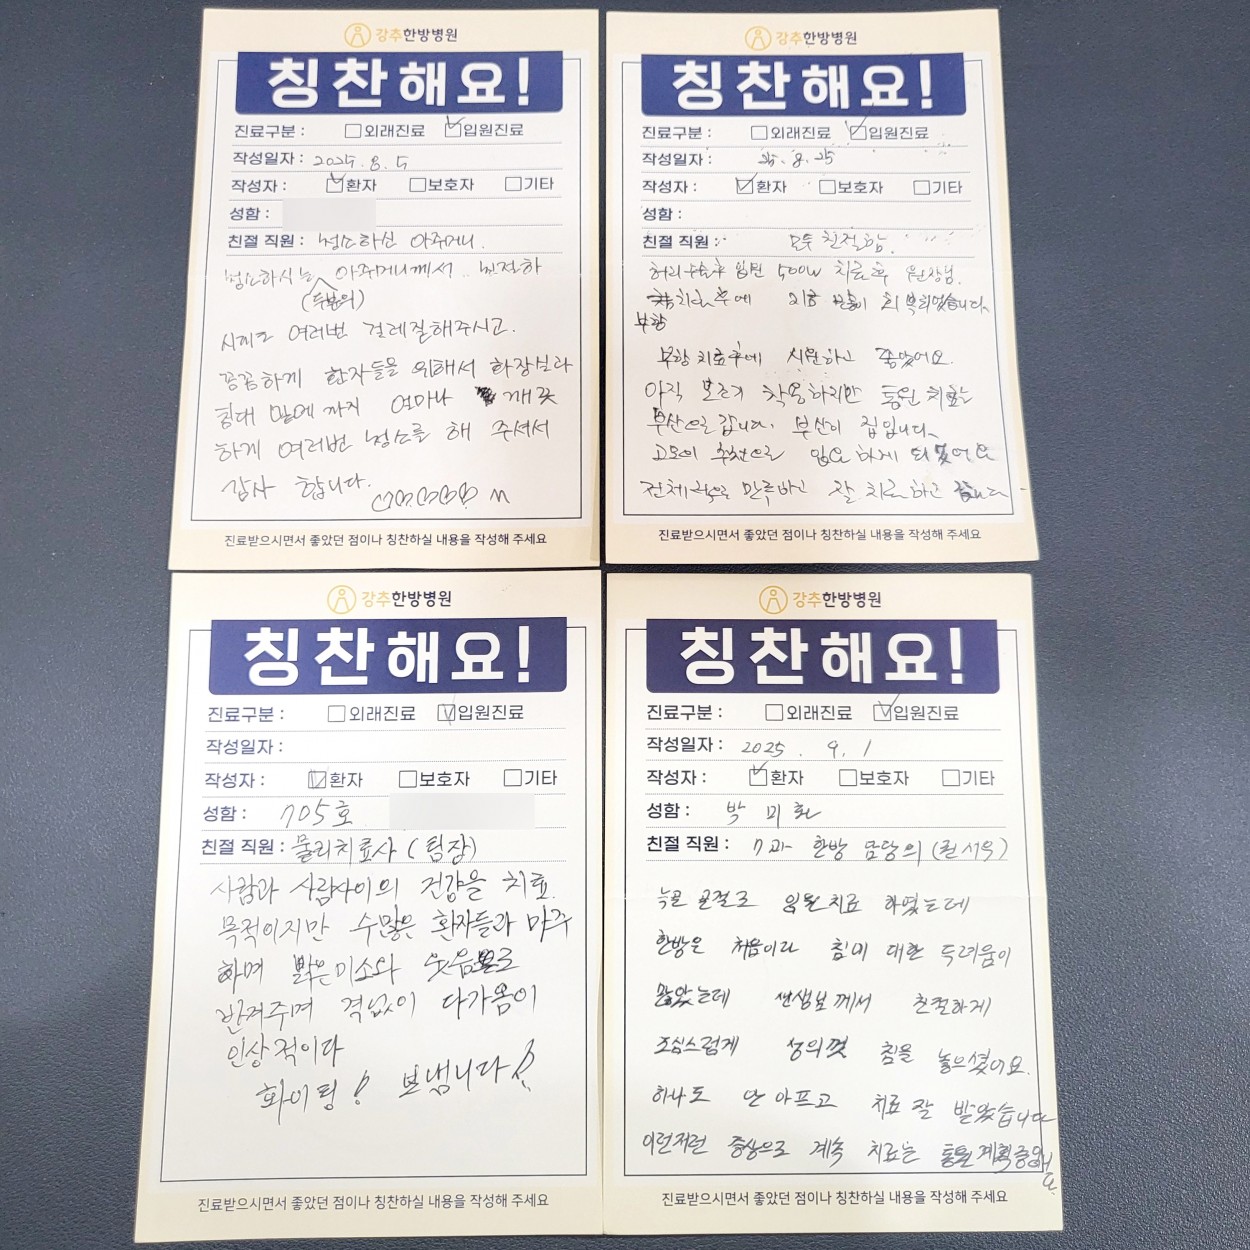 강추한방병원
칭찬해요!
진료구분 : 외래진료 입원진료
작성일자 : 2025. 8. 5
작성자 : 환자 보호자 기타
성함 :
친절 직원 : 청소하신 아주머니.
청소하시는 아주머니께서 친절하
(두분의)
시고 여러번 걸레질해주시고.
꼼꼼하게 환자들을 위해서 화장실과
침대 밑에까지 얼마나 깨끗
하게 여러번 청소를 해 주셔서
감사 합니다.
진료받으시면서 좋았던 점이나 칭찬하실 내용을 작성해 주세요
강추한방병원
칭찬해요!
진료구분 : 외래진료 입원진료
작성일자 : 25. 8. 25
작성자 : 환자 보호자 기타
성함 :
친절 직원 : 모두 친절함.
허리수술후 입원 치료후 원장님.
치료후에 회복되었습니다.
부항
부항 치료후에 시원하고 좋았어요.
아직 보조기 착용하지만 통원 치료는
부산으로 갑니다. 부산이 집입니다.
고모의 추천으로 입원하게 되었어요
전체적으로 만족하고 잘 치료하고 갑니다.
진료받으시면서 좋았던 점이나 칭찬하실 내용을 작성해 주세요
강추한방병원
칭찬해요!
진료구분 : 외래진료 입원진료
작성일자 :
작성자 : 환자 보호자 기타
성함 : 705호
친절 직원 : 물리치료사 (팀장)
사람과 사람사이의 건강을 치료
목적이지만 수많은 환자들과 마주
하며 밝은미소와 웃음으로
반겨주며 격없이 다가옴이
인상적이다
화이팅! 보냅니다!
진료받으시면서 좋았던 점이나 칭찬하실 내용을 작성해 주세요
강추한방병원
칭찬해요!
진료구분 : 외래진료 입원진료
작성일자 : 2025. 9. 1
작성자 : 환자 보호자 기타
성함 : 박미화
친절 직원 : 7과 한방 담당의 (권서우)
늑골 골절로 입원치료 하였는데
한방은 처음이라 침에 대한 두려움이
많았는데 선생님께서 친절하게
조심스럽게 성의껏 침을 놓으셨어요.
하나도 안아프고 치료 잘 받았습니다
이런저런 증상으로 계속 치료는 통원계획중이예
요
진료받으시면서 좋았던 점이나 칭찬하실 내용을 작성해 주세요